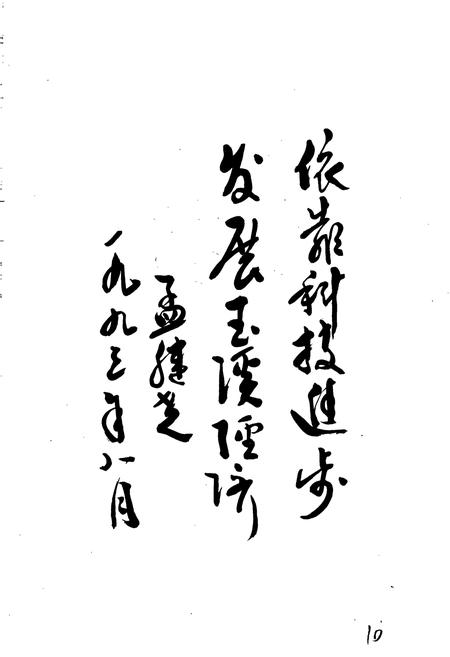 依靠科技進步
发展玉溪經济
孟继尧
一九九三年八月
10